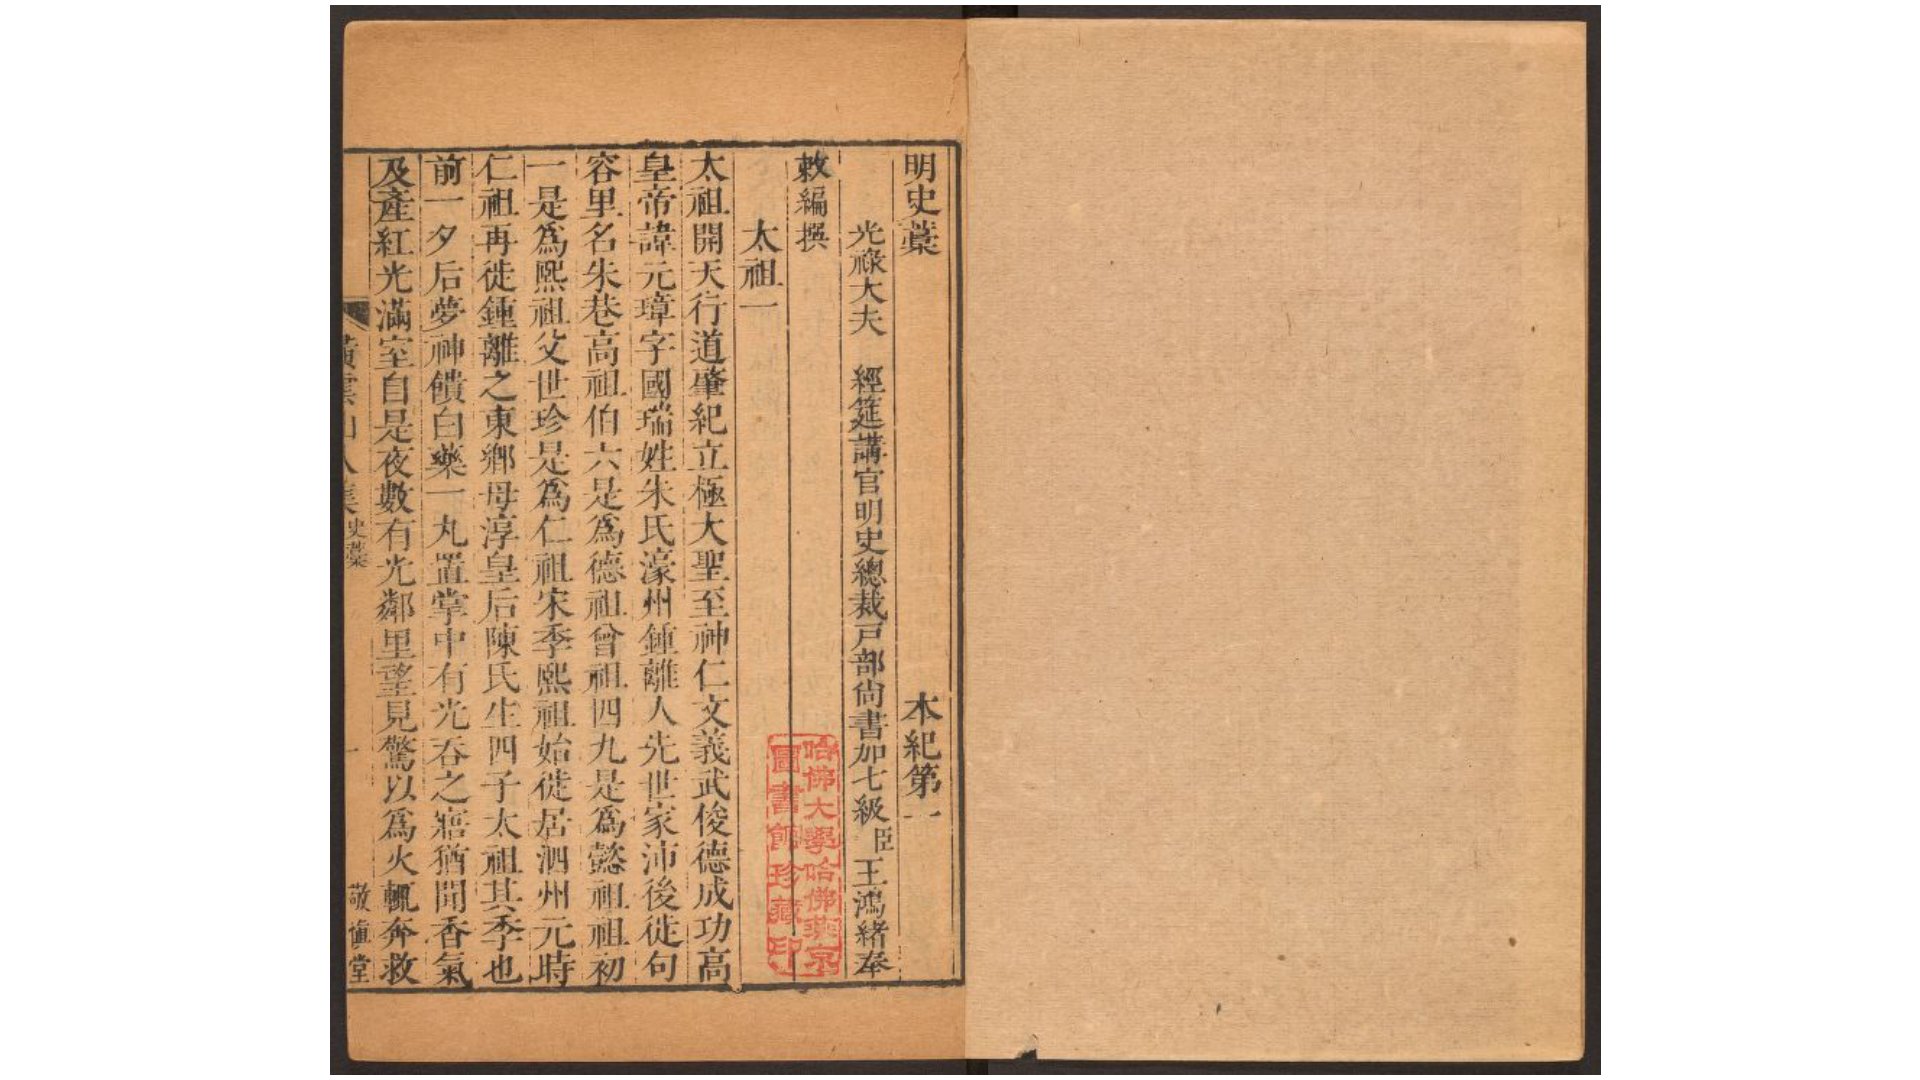 明史藁 本紀第一
光祿大夫 經筵講官明史總裁戸部尙書加七級臣王鴻緒奉
敕編撰
太祖一
太祖開天行道肇紀立極大聖至神仁文義武俊德成功高
皇帝諱元璋字國瑞姓朱氏濠州鍾離人先世家沛後徙句
容里名朱巷高祖伯六是爲德祖曾祖四九是爲懿祖祖初
一是爲熙祖父世珍是爲仁祖宋季熙祖始徙居泗州元時
仁祖再徙鍾離之東鄉母淳皇后陳氏生四子太祖其季也
前一夕后夢神饋白藥一丸置掌中有光吞之寤猶聞香氣
及產紅光滿室自是夜數有光鄰里望見驚以爲火輒奔救
橫雲山人集 史藁 一 敬愼堂
哈佛大學哈佛燕京
圖書館珍藏印